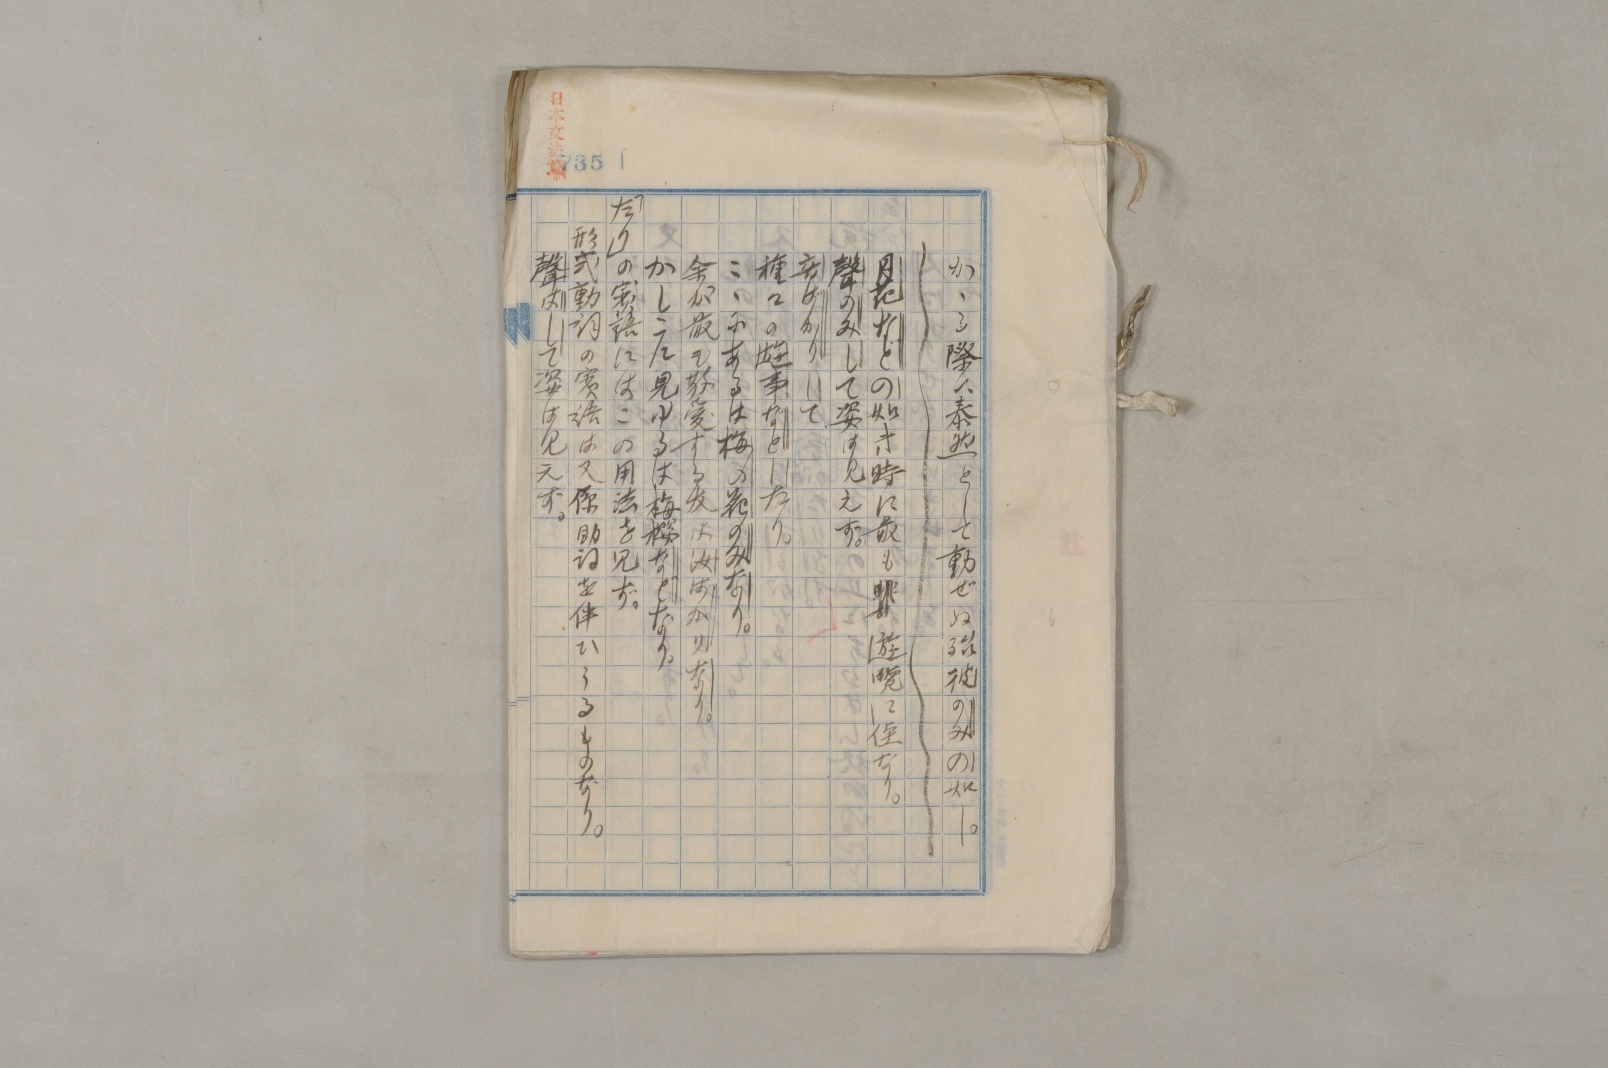 日本文法論
735
かゝる際に泰然として動ぜぬ彼のみの如し。
月花などの如き時に最も遊覧に佳なり。
聲のみして姿は見えず。
音ばかりして
種々の遊事などしたり。
こゝにあるは梅の花のみなり。
余が最も敬愛する友は汝ばかりなり。
かしこに見ゆるは梅櫻などなり。
「だけ」の賓語にはこの用法を見ず。
形式動詞の賓語は又係助詞を伴ひうるものなり。
聲はして姿は見えず。